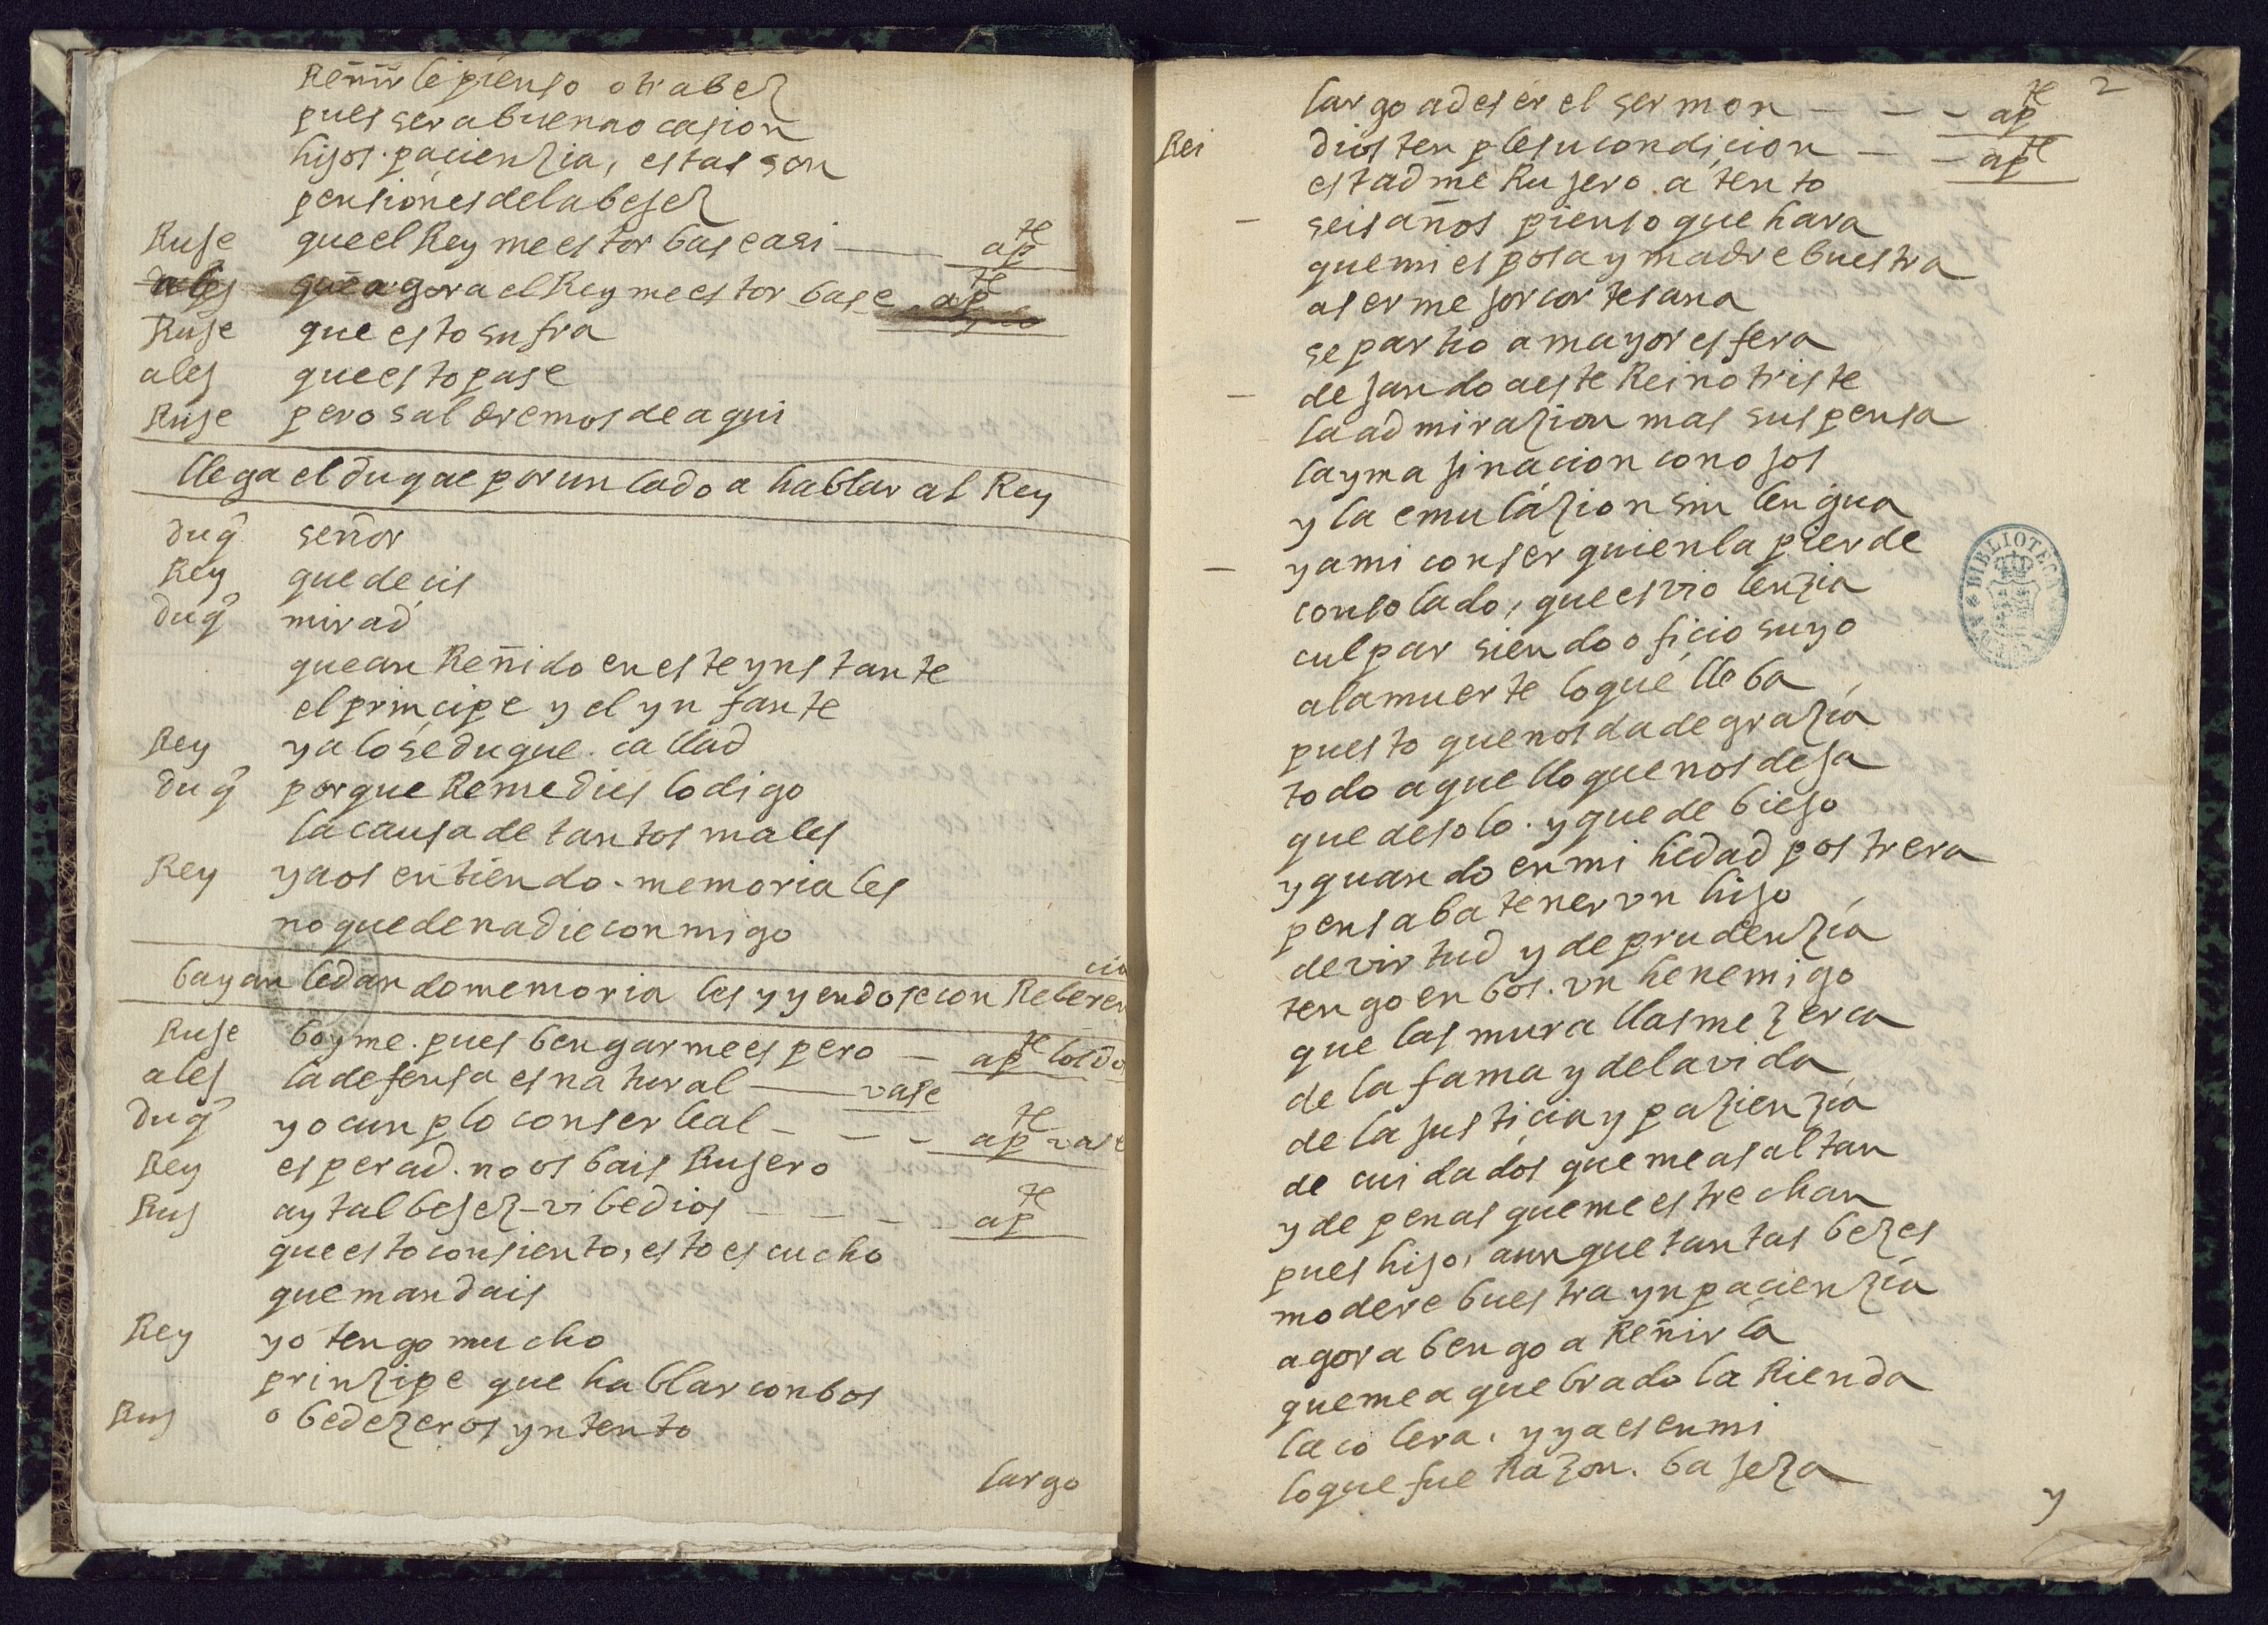 Reñirle pienso otra bez
pues sera buena ocasion
hijos. pacienzia, estas son
pensiones de la bejez
Ruje que el Rey me estorbase asi — ap te
ales que agora el Rey me estorbase ap te
Ruje que esto sufra
ales que esto pase
Ruje pero saldremos de aqui
llega el duque por un lado a hablar al Rey
duq señor
Rey que decis
duq mirad
que an Reñido en este ynstante
el principe y el ynfante
Rey ya lo se duque. callad
duq porque Remedies lo digo
la causa de tantos males
Rey ya os entiendo. memoriales
no quede nadie conmigo
bayanle dando memoriales y yendose con Reberen
cia
Ruje boyme. pues bengarme espero — ap te los do
ales la defensa es natural — vase
duq yo cunplo con ser leal - - - ap te vase
Rey esperad. no os bais Rujero
Ruj ay tal bejez - vibe dios - - - ap te
que esto consiento, esto escucho
que mandais
Rey yo tengo mucho
prinzipe que hablar con bos
Ruj obedezeros yntento
largo
2
largo a de ser el sermon - - - ap te
Rei dios tenple su condicion - - ap te
estadme Rujero. atento
seis años pienso que hara
que mi esposa y madre buestra
a ser mejor cortesana
se partio a mayor esfera
dejando a este Reino triste
la admirazion mas suspensa
la ymajinacion con ojos
y la emulazion sin lengua
y a mi con ser quien la pierde
consolado, que es violenzia
culpar siendo oficio suyo
a la muerte lo que lleba
puesto que nos da de grazia
todo aquello que nos deja
quede solo. y quede biejo
y quando en mi hedad postrera
pensaba tener vn hijo
de virtud y de prudenzia
tengo en bos. vn henemigo
que las murallas me zerca
de la fama y de la vida
de la justicia y pazienzia
de cuidados que me asaltan
y de penas que me estrechan
pues hijo, aunque tantas bezes
modere buestra ynpacienzia
agora bengo a Reñirla
que me a quebrado la Rienda
la colera. y ya es en mi
lo que fue Razon. bajeza
y
BIBLIOTECA